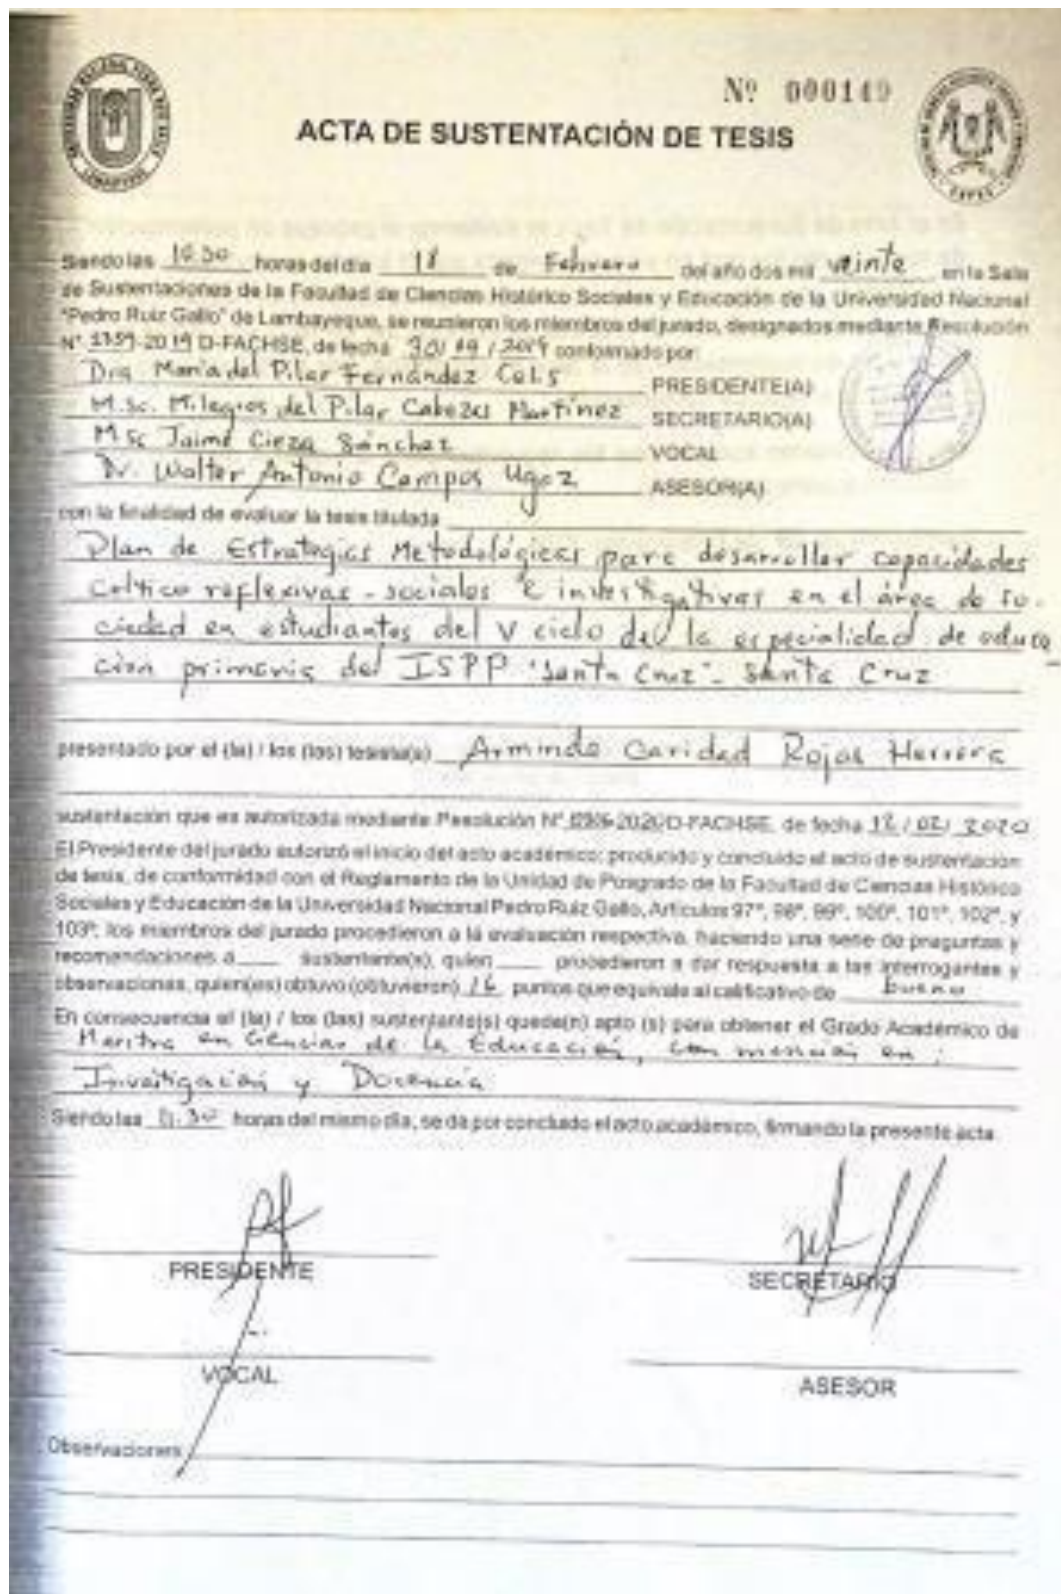 Nº 000149
ACTA DE SUSTENTACIÓN DE TESIS
Siendo las 10.30 horas del día 18 de Febrero del año dos mil veinte en la Sala
de Sustentaciones de la Facultad de Ciencias Histórico Sociales y Educación de la Universidad Nacional
"Pedro Ruiz Gallo" de Lambayeque, se reunieron los miembros del jurado, designados mediante Resolución
N° -2019 D-FACHSE, de fecha conformado por:
Dra María del Pilar Fernández Celis PRESIDENTE(A)
M.Sc. Milagros del Pilar Cabezas Martínez SECRETARIO(A)
M.Sc Jaime Cieza Sánchez VOCAL
Dr. Walter Antonio Campos Ugaz ASESOR(A)
con la finalidad de evaluar la tesis titulada
Plan de Estrategias Metodológicas para desarrollar capacidades
crítico reflexivas - sociales e investigativas en el área de so-
ciedad en estudiantes del V ciclo de la especialidad de educa
ción primaria del ISPP "Santa Cruz" - Santa Cruz
presentado por el (la) / los (las) tesista(s) Armindo Caridad Rojas Herrera
sustentación que es autorizada mediante Resolución N° -2020 D-FACHSE, de fecha 12 / 02 / 2020
El Presidente del jurado autorizó el inicio del acto académico; producido y concluido el acto de sustentación
de tesis, de conformidad con el Reglamento de la Unidad de Posgrado de la Facultad de Ciencias Histórico
Sociales y Educación de la Universidad Nacional Pedro Ruiz Gallo, Artículos 97°, 98°, 99°, 100°, 101°, 102°, y
103°; los miembros del jurado procedieron a la evaluación respectiva, haciendo una serie de preguntas y
recomendaciones a sustentante(s), quien procedieron a dar respuesta a las interrogantes y
observaciones, quien(es) obtuvo (obtuvieron) 16 puntos que equivale al calificativo de bueno
En consecuencia el (la) / los (las) sustentante(s) queda(n) apto (s) para obtener el Grado Académico de
Maestra en Ciencias de la Educación, con mención en:
Investigación y Docencia
Siendo las 11.30 horas del mismo día, se da por concluido el acto académico, firmando la presente acta.
PRESIDENTE
SECRETARIO
VOCAL
ASESOR
Observaciones